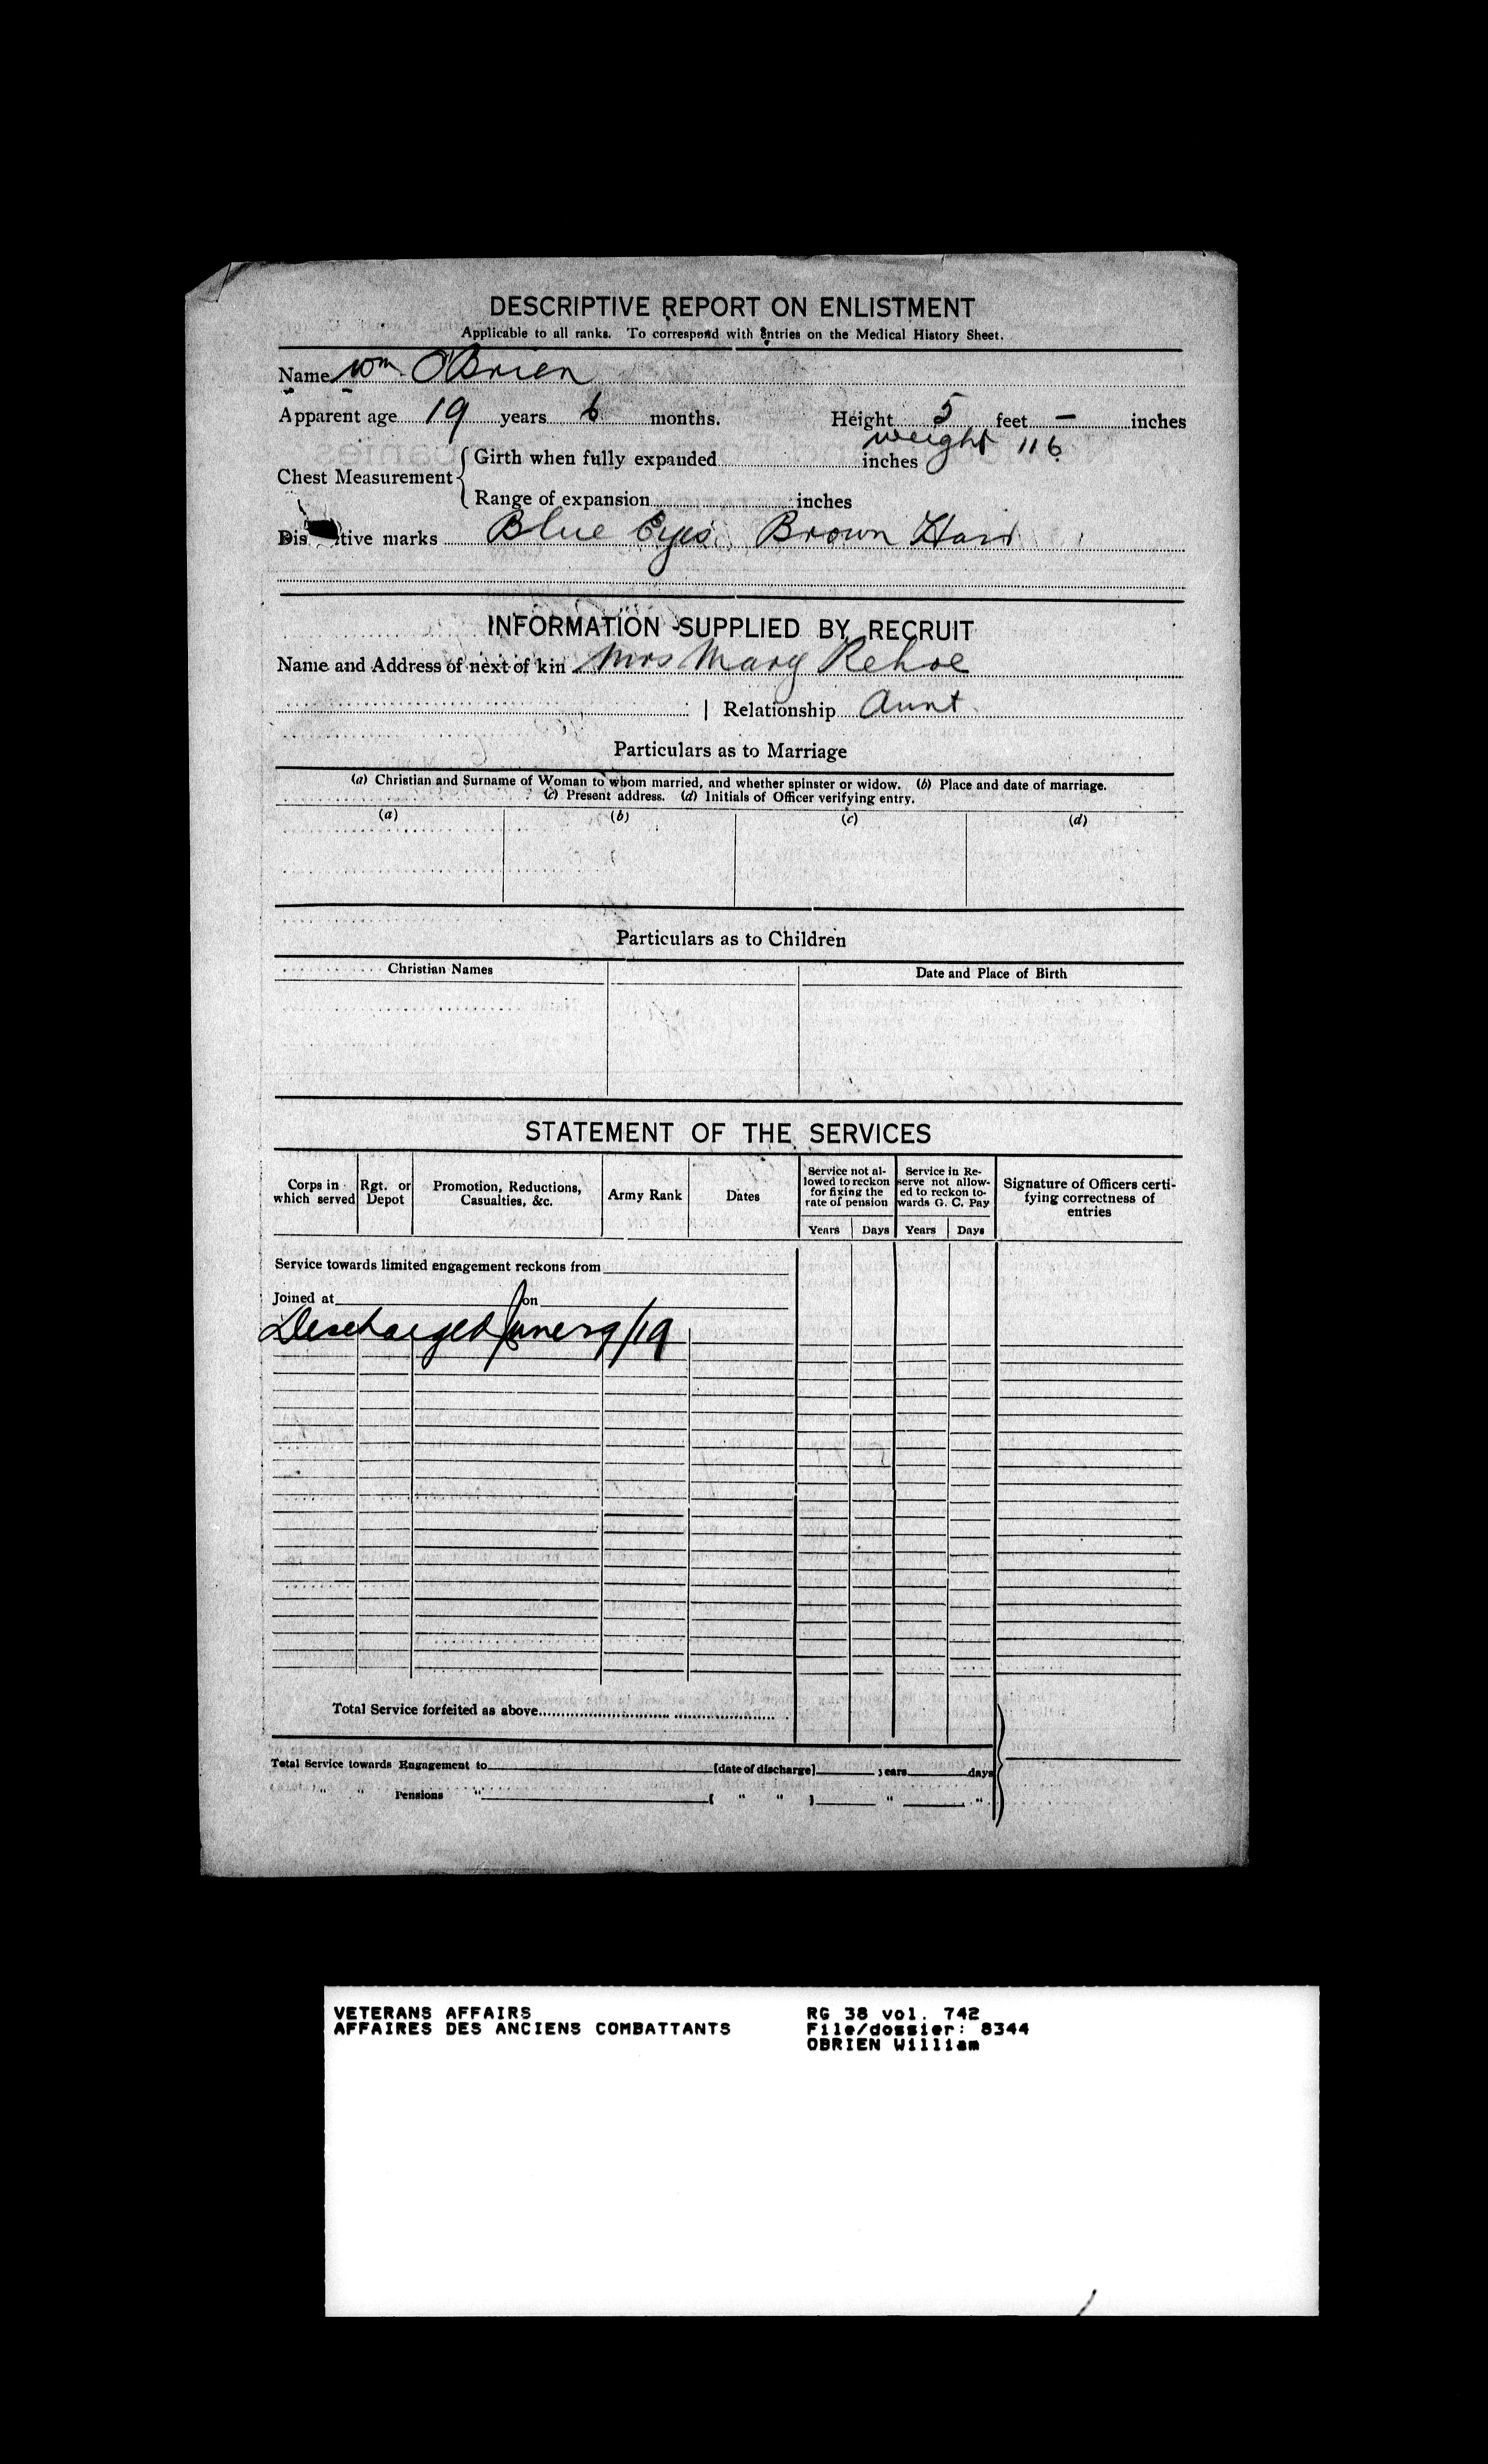 DESCRIPTIVE REPORT ON ENLISTMENT
Applicable to all ranks. To correspond with entries on the Medical History Sheet.
Name Wm O'Brien
Apparent age 19 years 6 months. Height 5 feet – inches
weight 116
Chest Measurement { Girth when fully expanded inches
Range of expansion inches
Dis tive marks Blue Eyes Brown Hair
INFORMATION SUPPLIED BY RECRUIT
Name and Address of next of kin Mrs Mary Kehoe
| Relationship Aunt
Particulars as to Marriage
(a) Christian and Surname of Woman to whom married, and whether spinster or widow. (b) Place and date of marriage.
(c) Present address. (d) Initials of Officer verifying entry.
(a) (b) (c) (d)
Particulars as to Children
Christian Names Date and Place of Birth
STATEMENT OF THE SERVICES
Corps in which served Rgt. or Depot Promotion, Reductions, Casualties, &c. Army Rank Dates Service not allowed to reckon for fixing the rate of pension Service in Reserve not allowed to reckon towards G. C. Pay Signature of Officers certifying correctness of entries
Years Days Years Days
Service towards limited engagement reckons from
Joined at on
Discharged June 19/19
Total Service forfeited as above
Total Service towards Engagement to [date of discharge] years days
" " Pensions " [ " " ] " "
VETERANS AFFAIRS RG 38 vol. 742
AFFAIRES DES ANCIENS COMBATTANTS File/dossier: 8344
OBRIEN William